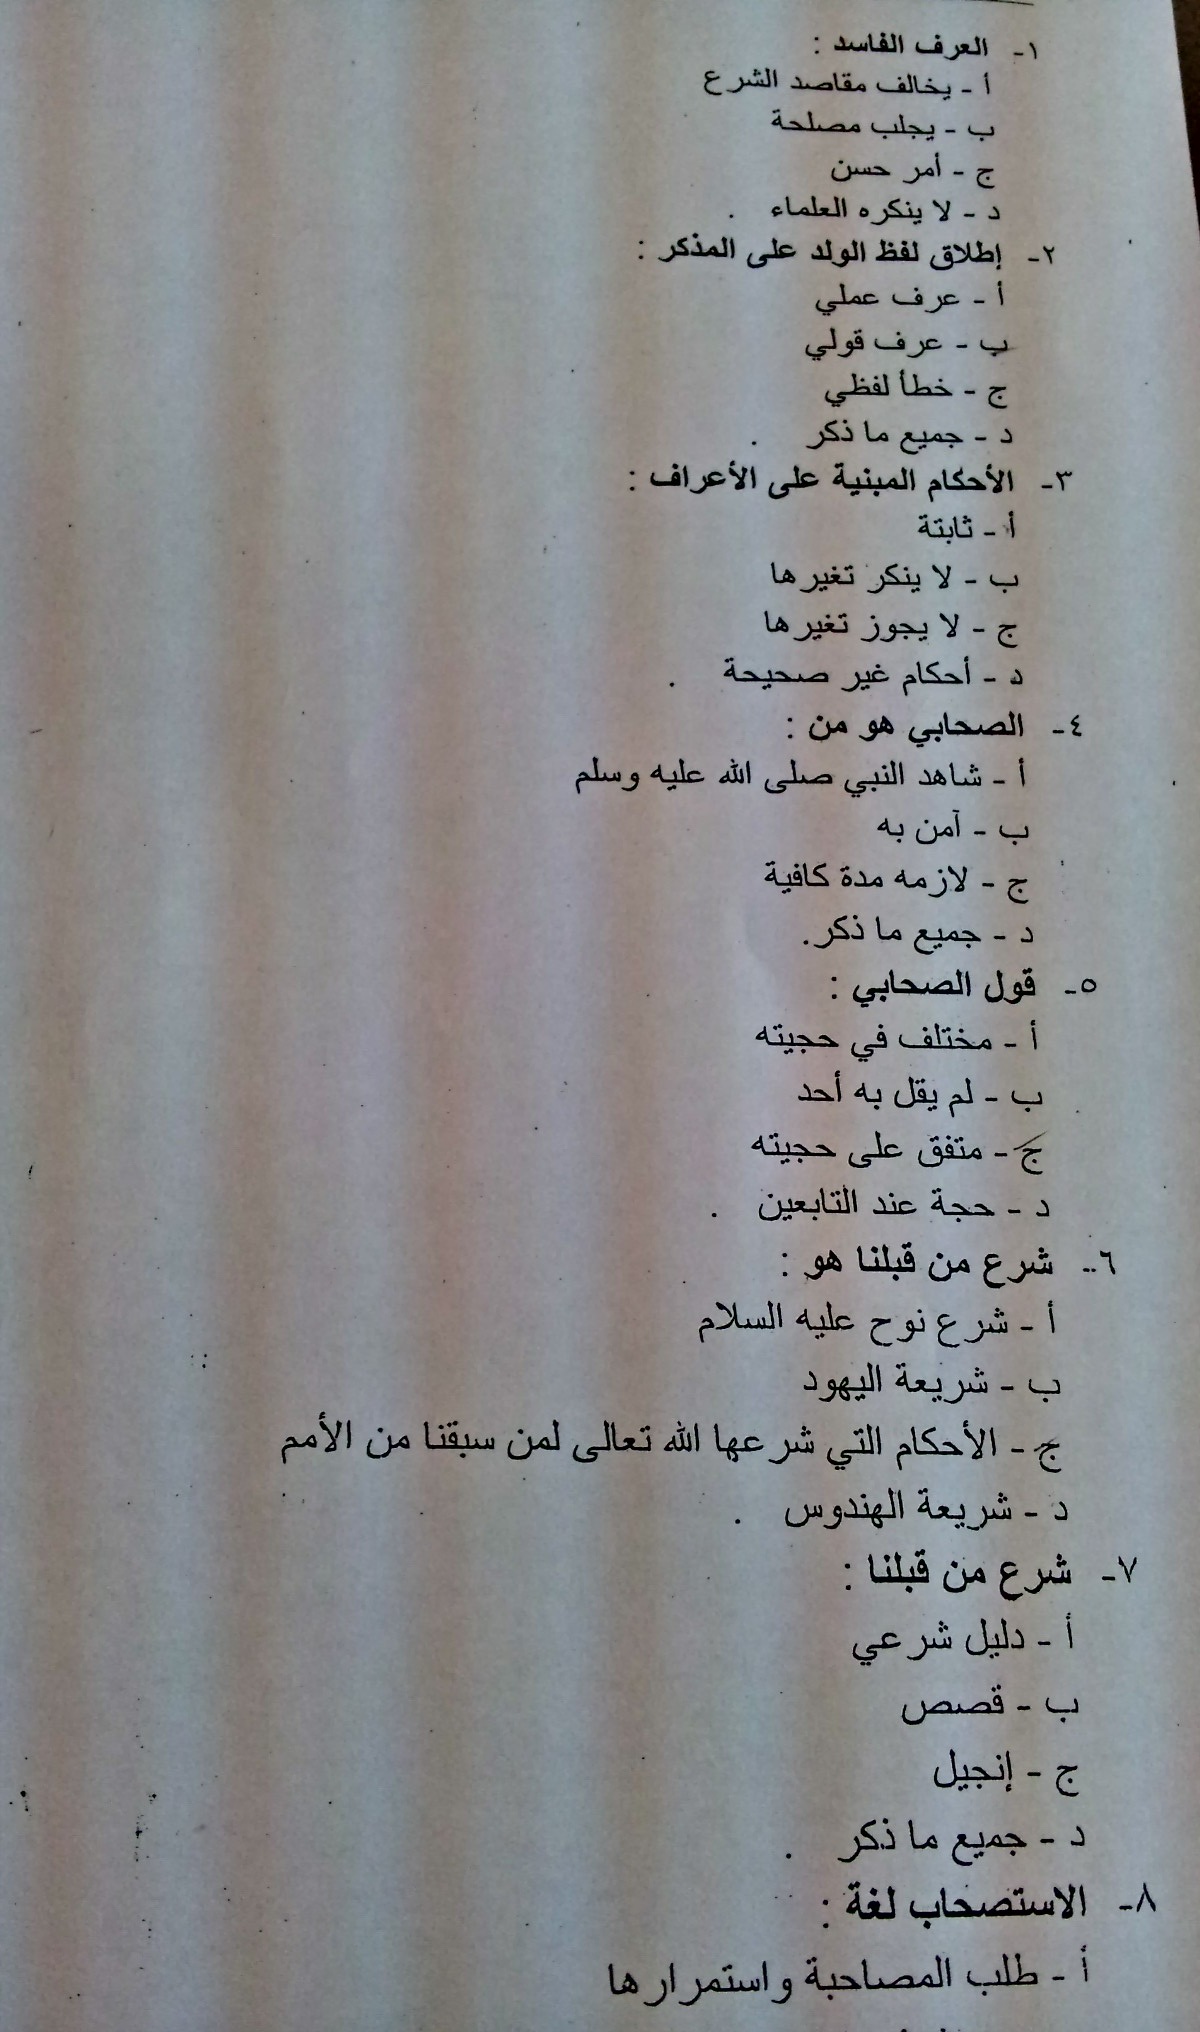 ١- العرف الفاسد :
أ - يخالف مقاصد الشرع
ب - يجلب مصلحة
ج - أمر حسن
د - لا ينكره العلماء .
٢- إطلاق لفظ الولد على المذكر :
أ - عرف عملي
ب - عرف قولي
ج - خطأ لفظي
د - جميع ما ذكر .
٣- الأحكام المبنية على الأعراف :
أ - ثابتة
ب - لا ينكر تغيرها
ج - لا يجوز تغيرها
د - أحكام غير صحيحة .
٤- الصحابي هو من :
أ - شاهد النبي صلى الله عليه وسلم
ب - آمن به
ج - لازمه مدة كافية
د - جميع ما ذكر.
٥- قول الصحابي :
أ - مختلف في حجيته
ب - لم يقل به أحد
ج - متفق على حجيته
د - حجة عند التابعين .
٦- شرع من قبلنا هو :
أ - شرع نوح عليه السلام
ب - شريعة اليهود
ج - الأحكام التي شرعها الله تعالى لمن سبقنا من الأمم
د - شريعة الهندوس .
٧- شرع من قبلنا :
أ - دليل شرعي
ب - قصص
ج - إنجيل
د - جميع ما ذكر .
٨- الاستصحاب لغة :
أ - طلب المصاحبة واستمرارها